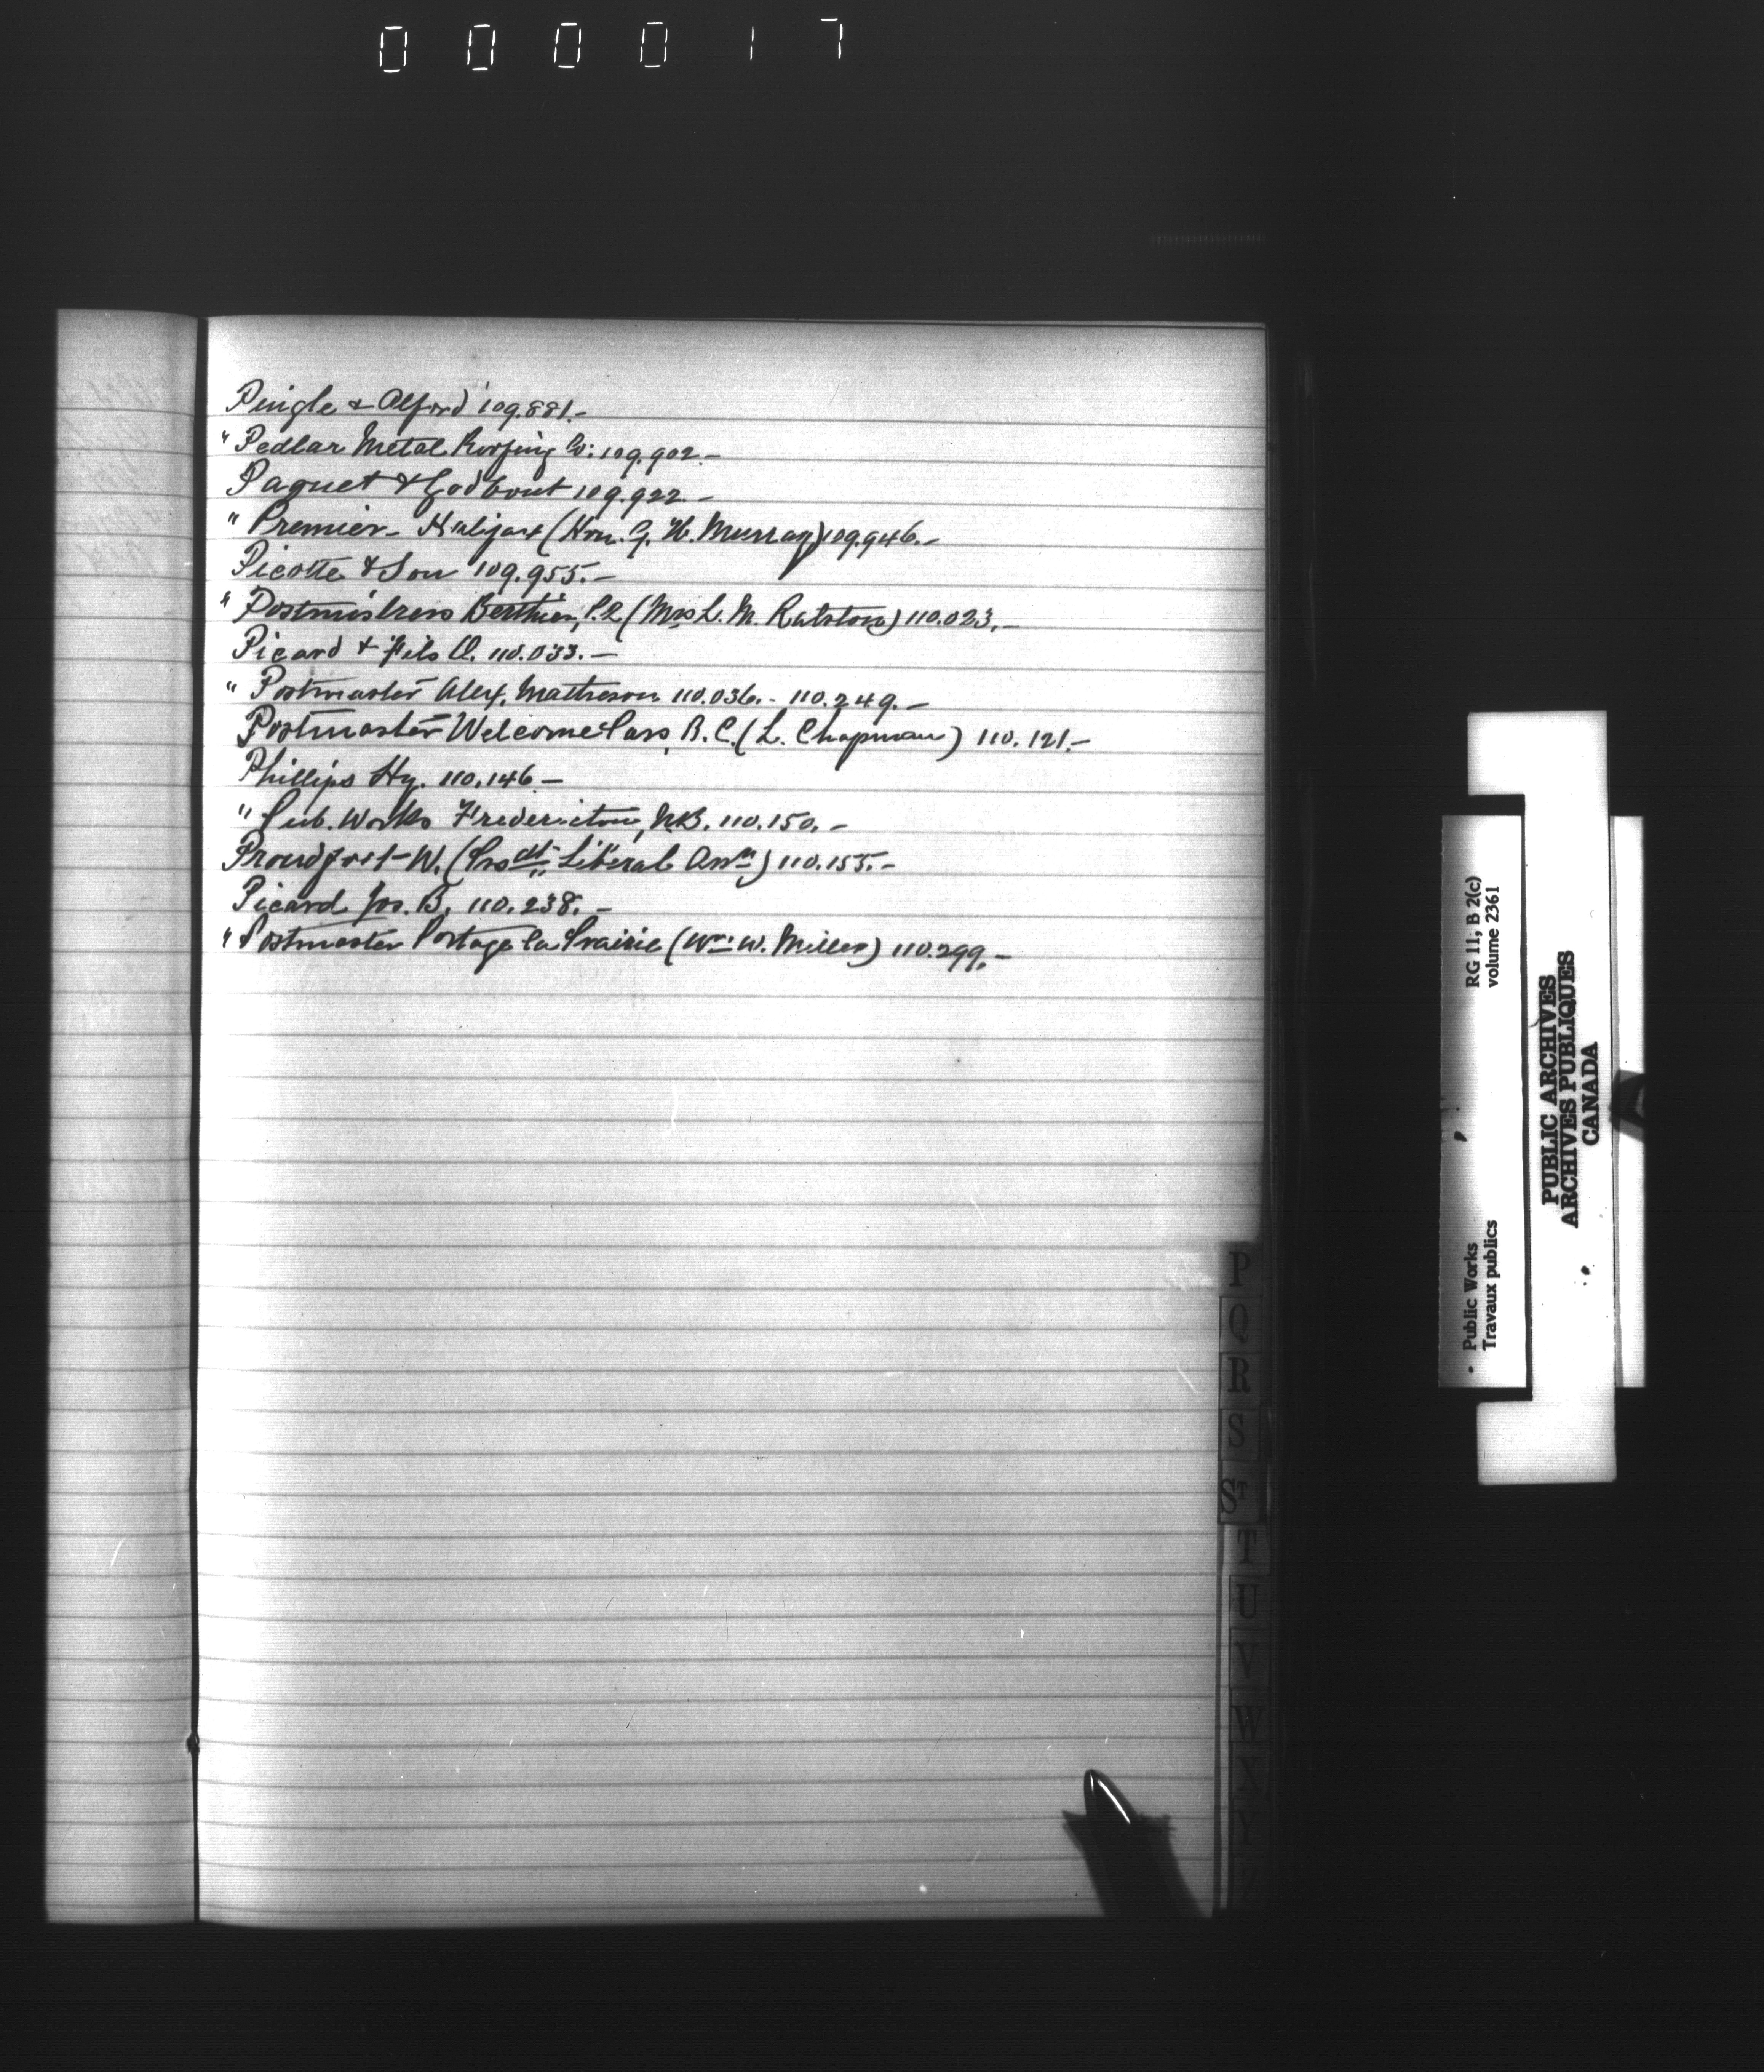 000017
Pingle & Alford 109.881.-
" Pedlar Metal Roofing Co: 109.902.-
Paquet & Godbout 109.922.-
" Premier- Halifax (Hon. G. H. Murray) 109.946.-
Picotte & Son 109.955.-
" Postmistress Berthier, P.Q (Mrs L. M. Ralston) 110.023.-
Picard & Fils O. 110.033.-
" Postmaster Alex. Matheson 110.036.- 110.249.-
Postmaster Welcome Pass, B.C. (L. Chapman) 110.121.-
Phillips Hy. 110.146-
" Pub. Works Fredericton, N.B. 110.150.-
Proudfoot-W. (Presdt Liberal Assn) 110.155.-
Picard Jos. B. 110.238.-
" Postmaster Portage la Prairie (Wm W. Miller) 110.299.-
P
Q
R
S
ST
T
U
V
W
X
Y
Z
• Public Works RG 11, B 2(c)
Travaux publics volume 2361
PUBLIC ARCHIVES
ARCHIVES PUBLIQUES
CANADA